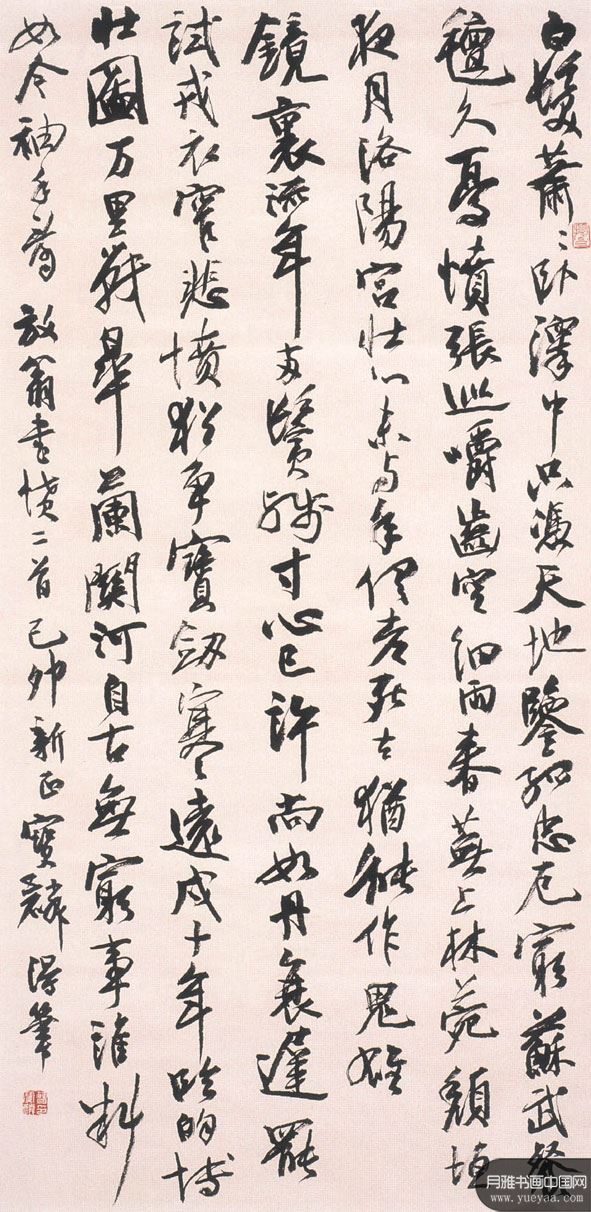 白髮蕭〻臥澤中只憑天地鑒孤忠厄窮蘇武餐
氈久憂憤張巡嚼齒空細雨春蕪上林苑頹垣
夜月洛陽宮壯心未與年俱老死去猶能作鬼雄
鏡裏流年兩鬢殘寸心已許尚如丹衰遲罷
試戎衣窄悲憤猶爭寶劍寒遠戍十年臨的博
壯圖万里戰皋蘭關河自古無窮事誰料
如今袖手看 放翁書憤二首己卯新正寶麟筆
月雅书画中国网
www.yueyaa.com